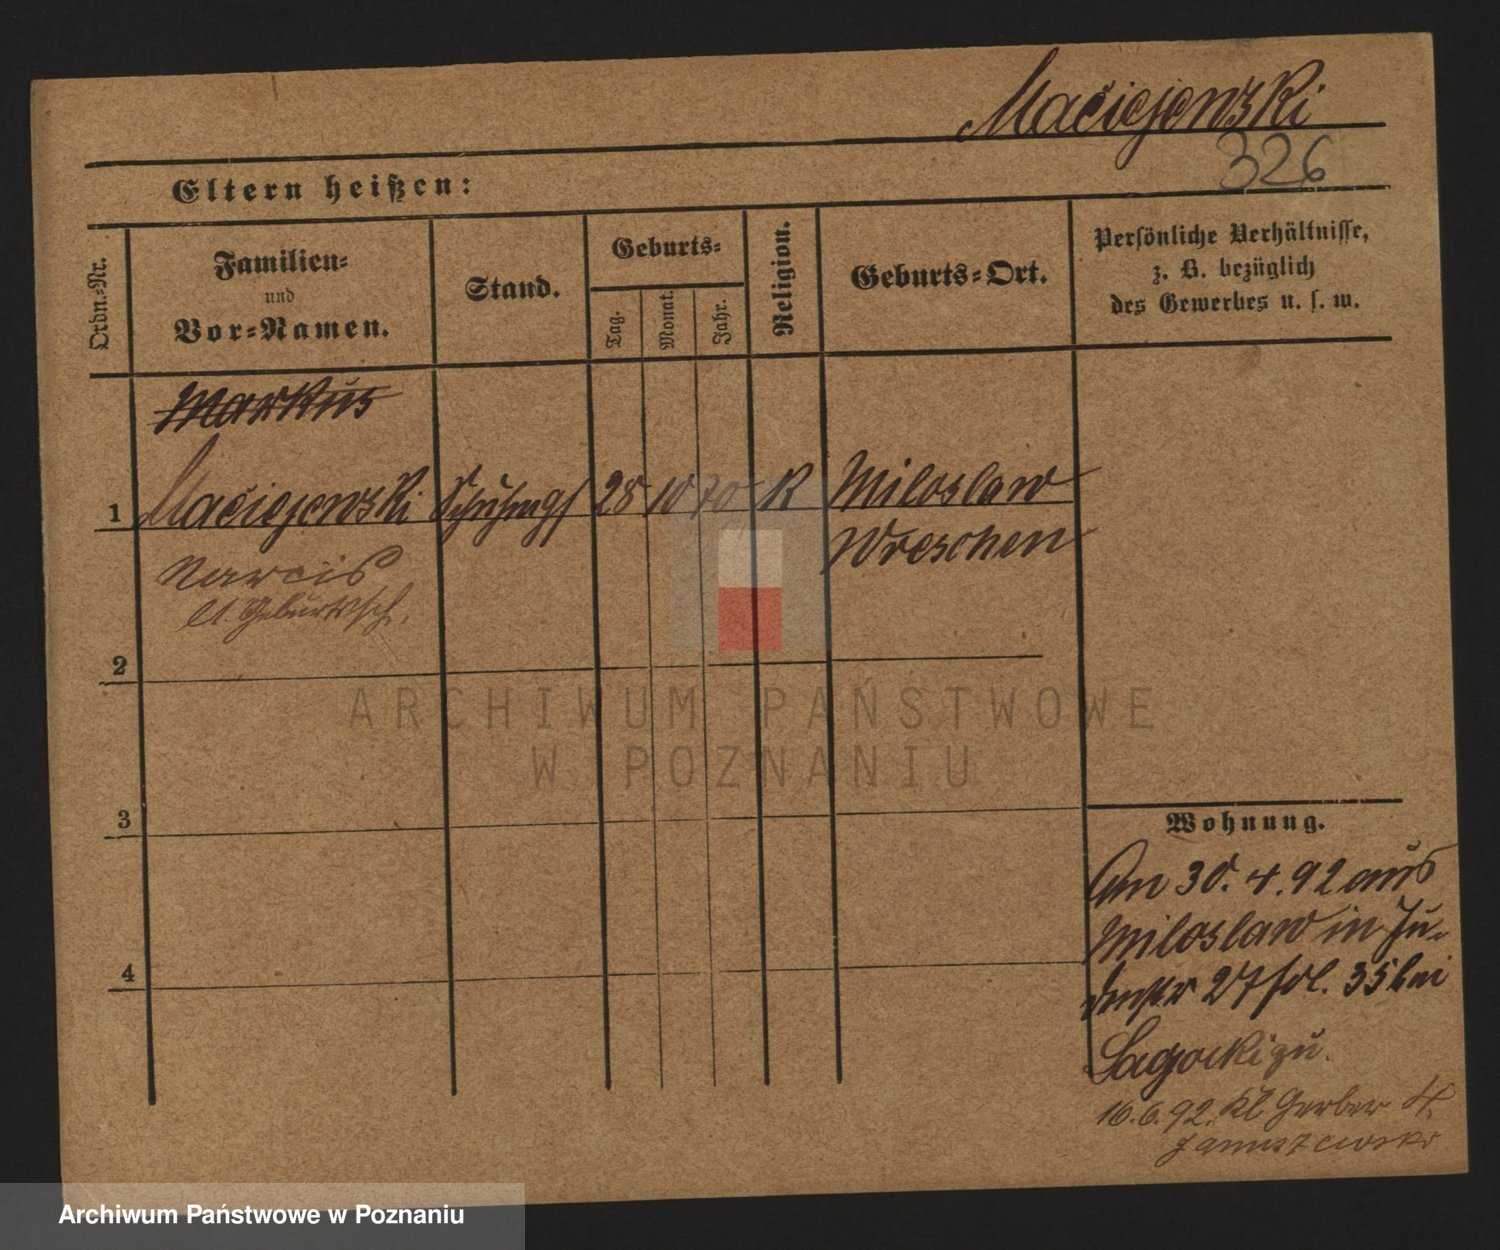 Maciejewski
326
Eltern heißen:
Ordn.-Nr.
Familien-
und
Vor-Namen.
Stand.
Geburts-
Tag.
Monat.
Jahr.
Religion.
Geburts-Ort.
Persönliche Verhältnisse,
z. B. bezüglich
des Gewerbes u. s. w.
Markus
1 Maciejewski Schuhmgs 28 10 70 K Miloslaw
Wreschen
Narcis
lt. Geburtssch.
2
3
4
Wohnung.
Am 30.4.92 aus
Miloslaw in Ju-
denstr 27 fol. 35 bei
zu.
16.6.92. Kl Gerber 4
Januszewski
ARCHIWUM PAŃSTWOWE
W POZNANIU
Archiwum Państwowe w Poznaniu